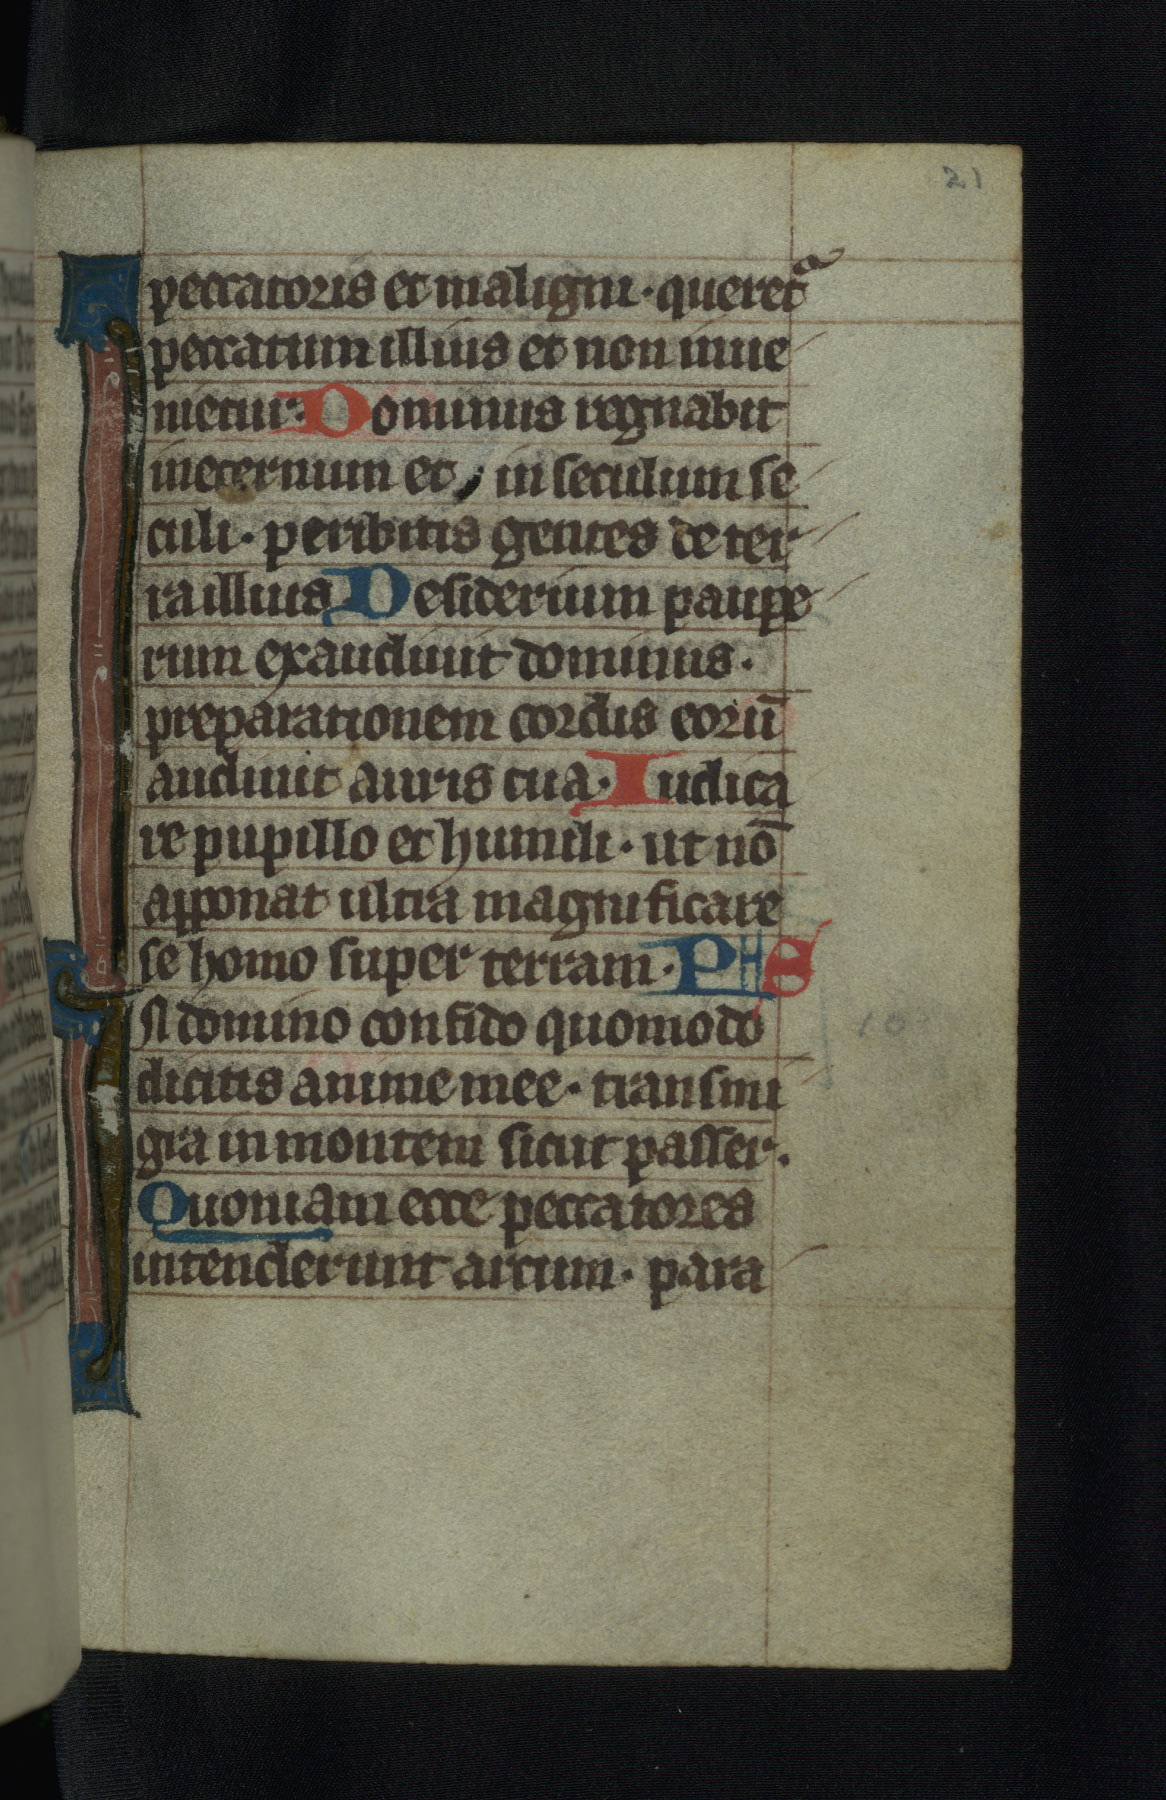 21
peccatoris et maligni · queret᷑
peccatum illius et non inue
nietur· Dominus regnabit
ineternum et, in seculum se
culi · peribitis gentes de ter
ra illius Desiderium paupe
rum exaudiuit dominus ·
preparationem cordis eorū
audiuit auris tua · Iudica
re pupillo et humili · ut nō
apponat ultra magnificare
se homo super terram · PS
IN domino confido quomodo
dicitis anime mee · transmi
gra in montem sicut passer ·
Quoniam ecce peccatores
intenderunt arcum · para
10